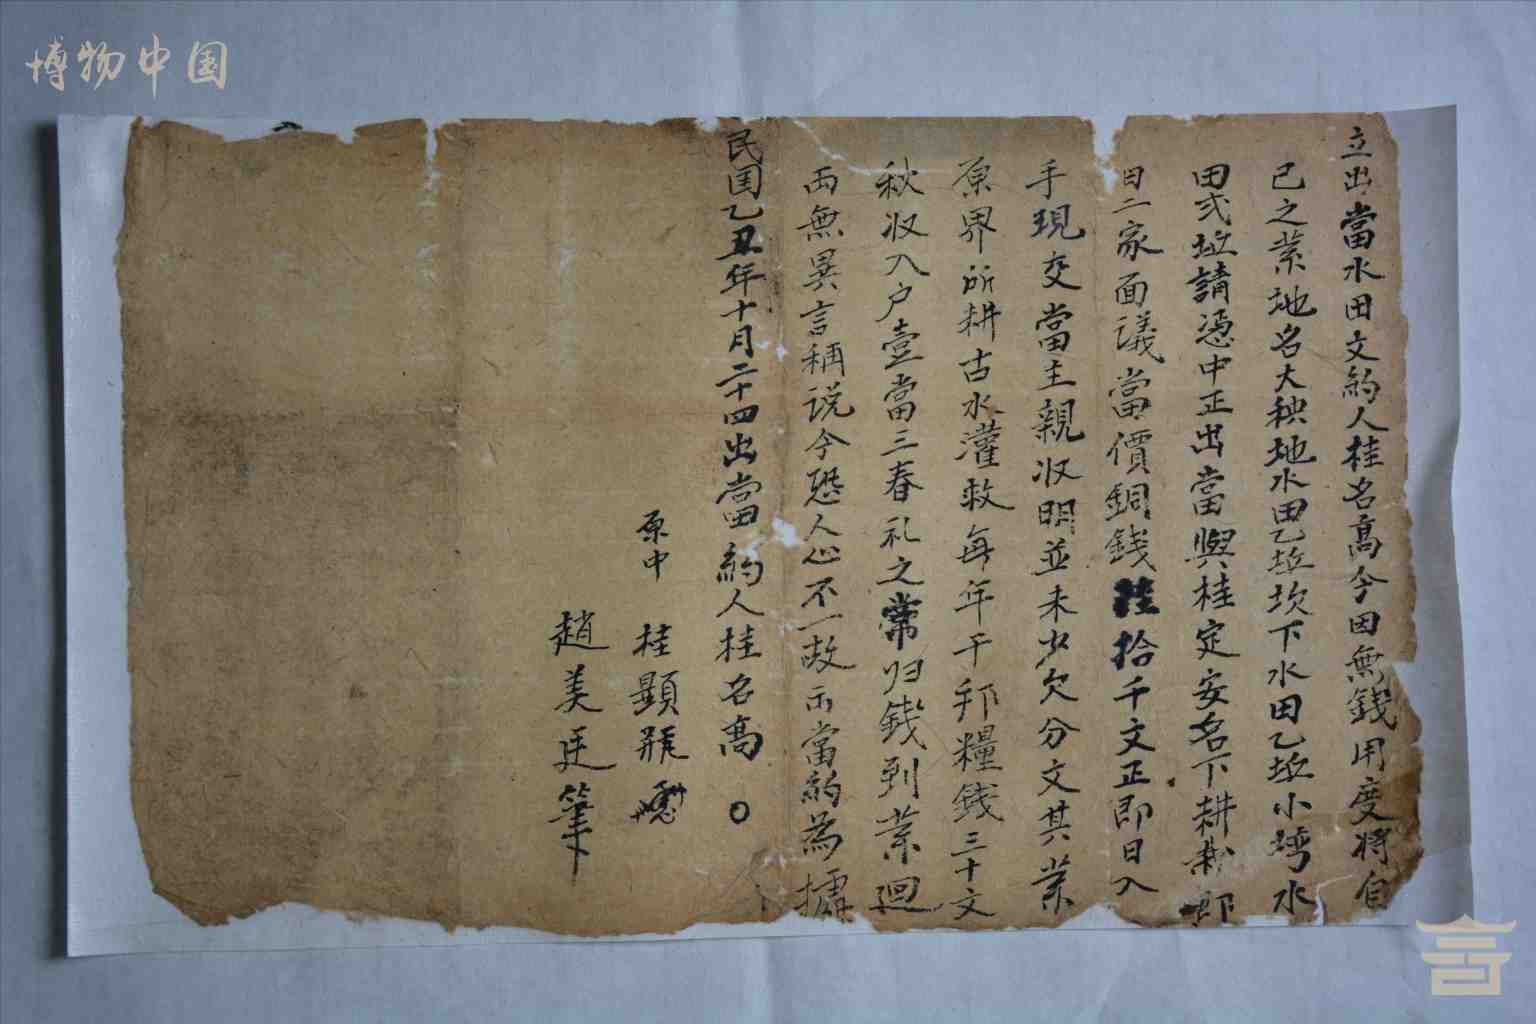 博物中国
立出當水田文約人桂名高今因無錢用度將自
己之業地名大秧地水田乙坵坎下水田乙坵小塆水
田弍坵請憑中正出當與桂定安名下耕栽即
日二家面議當價銅錢陸拾千文正即日入
手現交當主親收明並未少欠分文其業
原界所耕古水灌救每年干邦糧錢三十文
秋收入户壹當三春礼之常归錢到業迴
両無異言稱说今恐人心不一故示當約為據
民国乙丑年十月二十四出當約人桂名高 〇
原中 桂顯
趙美廷筆